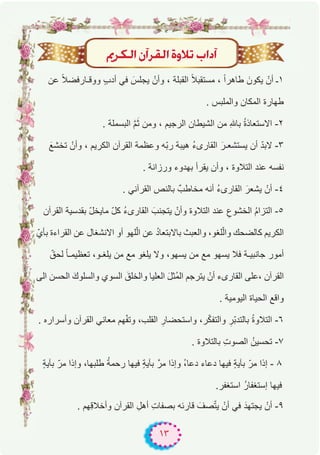 آداب تلاوة القرآن الكريم
١- أنْ يكونَ طاهراً ، مستقبلاً القبلة ، وأنْ يجلسَ في أدبٍ ووقـارفضـلاً عن
طهارة المكان والملبس .
٢- الاستعاذةُ باللهِ من الشيطان الرجيم ، ومن ثَمَّ البسملة .
٣- لابدّ أن يستشعـرَ القارىءُ هيبة ربّه وعظمة القرآن الكريم ، وأنْ تخشعَ
نفسه عند التلاوة ، وأن يقرأ بهدوءٍ ورزانة .
٤- أنْ يشعرَ القارىءُ أنه مخاطبٌ بالنص القرآني .
٥- التزامُ الخشوع عند التلاوة وأنْ يتجنبَ القارىءُ كلّ مايخلّ بقدسية القرآن
الكريم كالضحكِ واللّغو، والعبثِ بالابتعادُ عن اللّهو أو الانشغال عن القراءة بأيّ
أمور جانبيـة فلا يسهو مع من يسهو، ولا يلغو مع من يلغـو، تعظيمـاً لحقّ
القرآن ،على القارىء أنْ يترجم المُثلَ العليا والخلقَ السوي والسلوكَ الحسن الى
واقع الحياة اليومية .
٦- التلاوةُ بالتدبّر والتفكّر، واستحضار القلب، وتفّهم معاني القرآن وأسراره .
٧- تحسينُ الصوتِ بالتلاوة .
٨ - إذا مرّ بآيةٍ فيها دعاء دعاءٌ وإذا مرَّ بآيةٍ فيها رحمةٌ طلبها، وإذا مرّ بآيةٍ
فيها إستغفارٌ استغفر.
٩- أنْ يجتهدَ في أنْ يتّصفَ قارئه بصفاتِ أهلِ القرآن وأخلاقِهم .
١٣